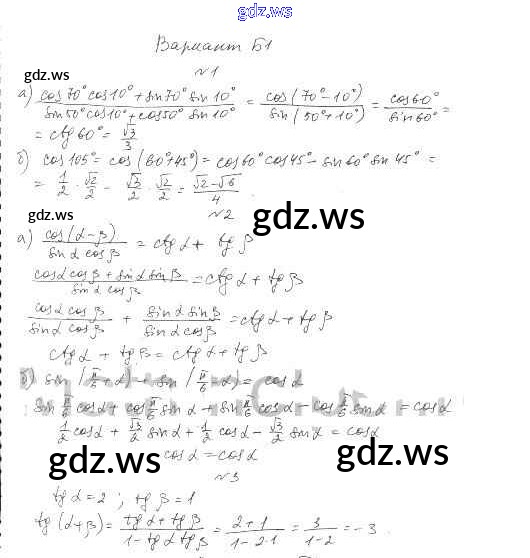 gdz.ws
Вариант Б1
gdz.ws
№1
а) (cos70°cos10° + sin70° sin10°)/(sin50°cos10° + cos50° sin10°) = cos(70°-10°)/sin(50°+10°) = cos60°/sin60° =
= ctg60° = √3/3
б) cos105° = cos(60°+45°) = cos60°cos45° - sin60° sin45° =
= 1/2 · √2/2 - √3/2 · √2/2 = (√2-√6)/4
gdz.ws №2 gdz.ws
а) cos(α-β)/(sinα cosβ) = ctgα + tgβ
(cosα cosβ + sinα sinβ)/(sinα cosβ) = ctgα + tgβ
cosα cosβ/(sinα cosβ) + sinα sinβ/(sinα cosβ) = ctgα + tgβ
ctgα + tgβ = ctgα + tgβ
б) sin(π/6+α) + sin(π/6-α) = cosα
sin π/6 cosα + cos π/6 sinα + sin π/6 cosα - cos π/6 sinα = cosα
1/2 cosα + √3/2 sinα + 1/2 cosα - √3/2 sinα = cosα
gdz.ws cosα = cosα gdz.ws
№3
tgα = 2 ; tgβ = 1
tg(α+β) = (tgα + tgβ)/(1 - tgα tgβ) = (2+1)/(1-2·1) = 3/(1-2) = -3.
gdz.ws